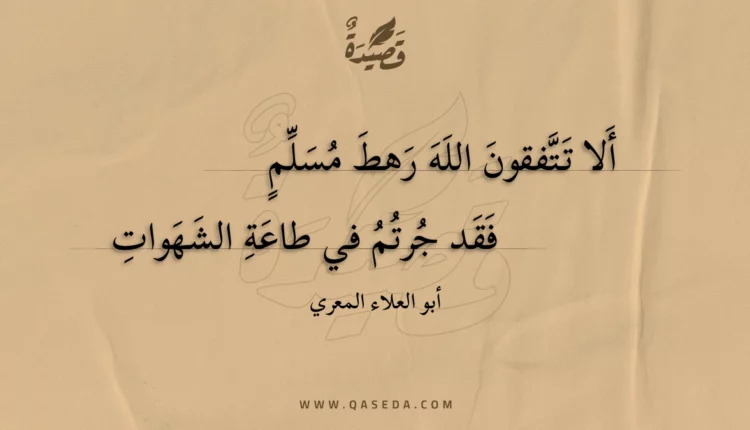 قَصِيْدَةٌ
أَلا تَتَّفقونَ اللَهَ رَهطَ مُسَلِّمٍ
فَقَد جُرتُمُ في طاعَةِ الشَهَواتِ
أبو العلاء المعري
WWW.QASEDA.COM